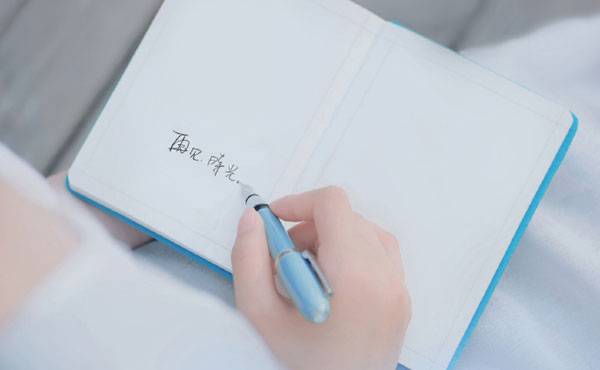 再见.时光.